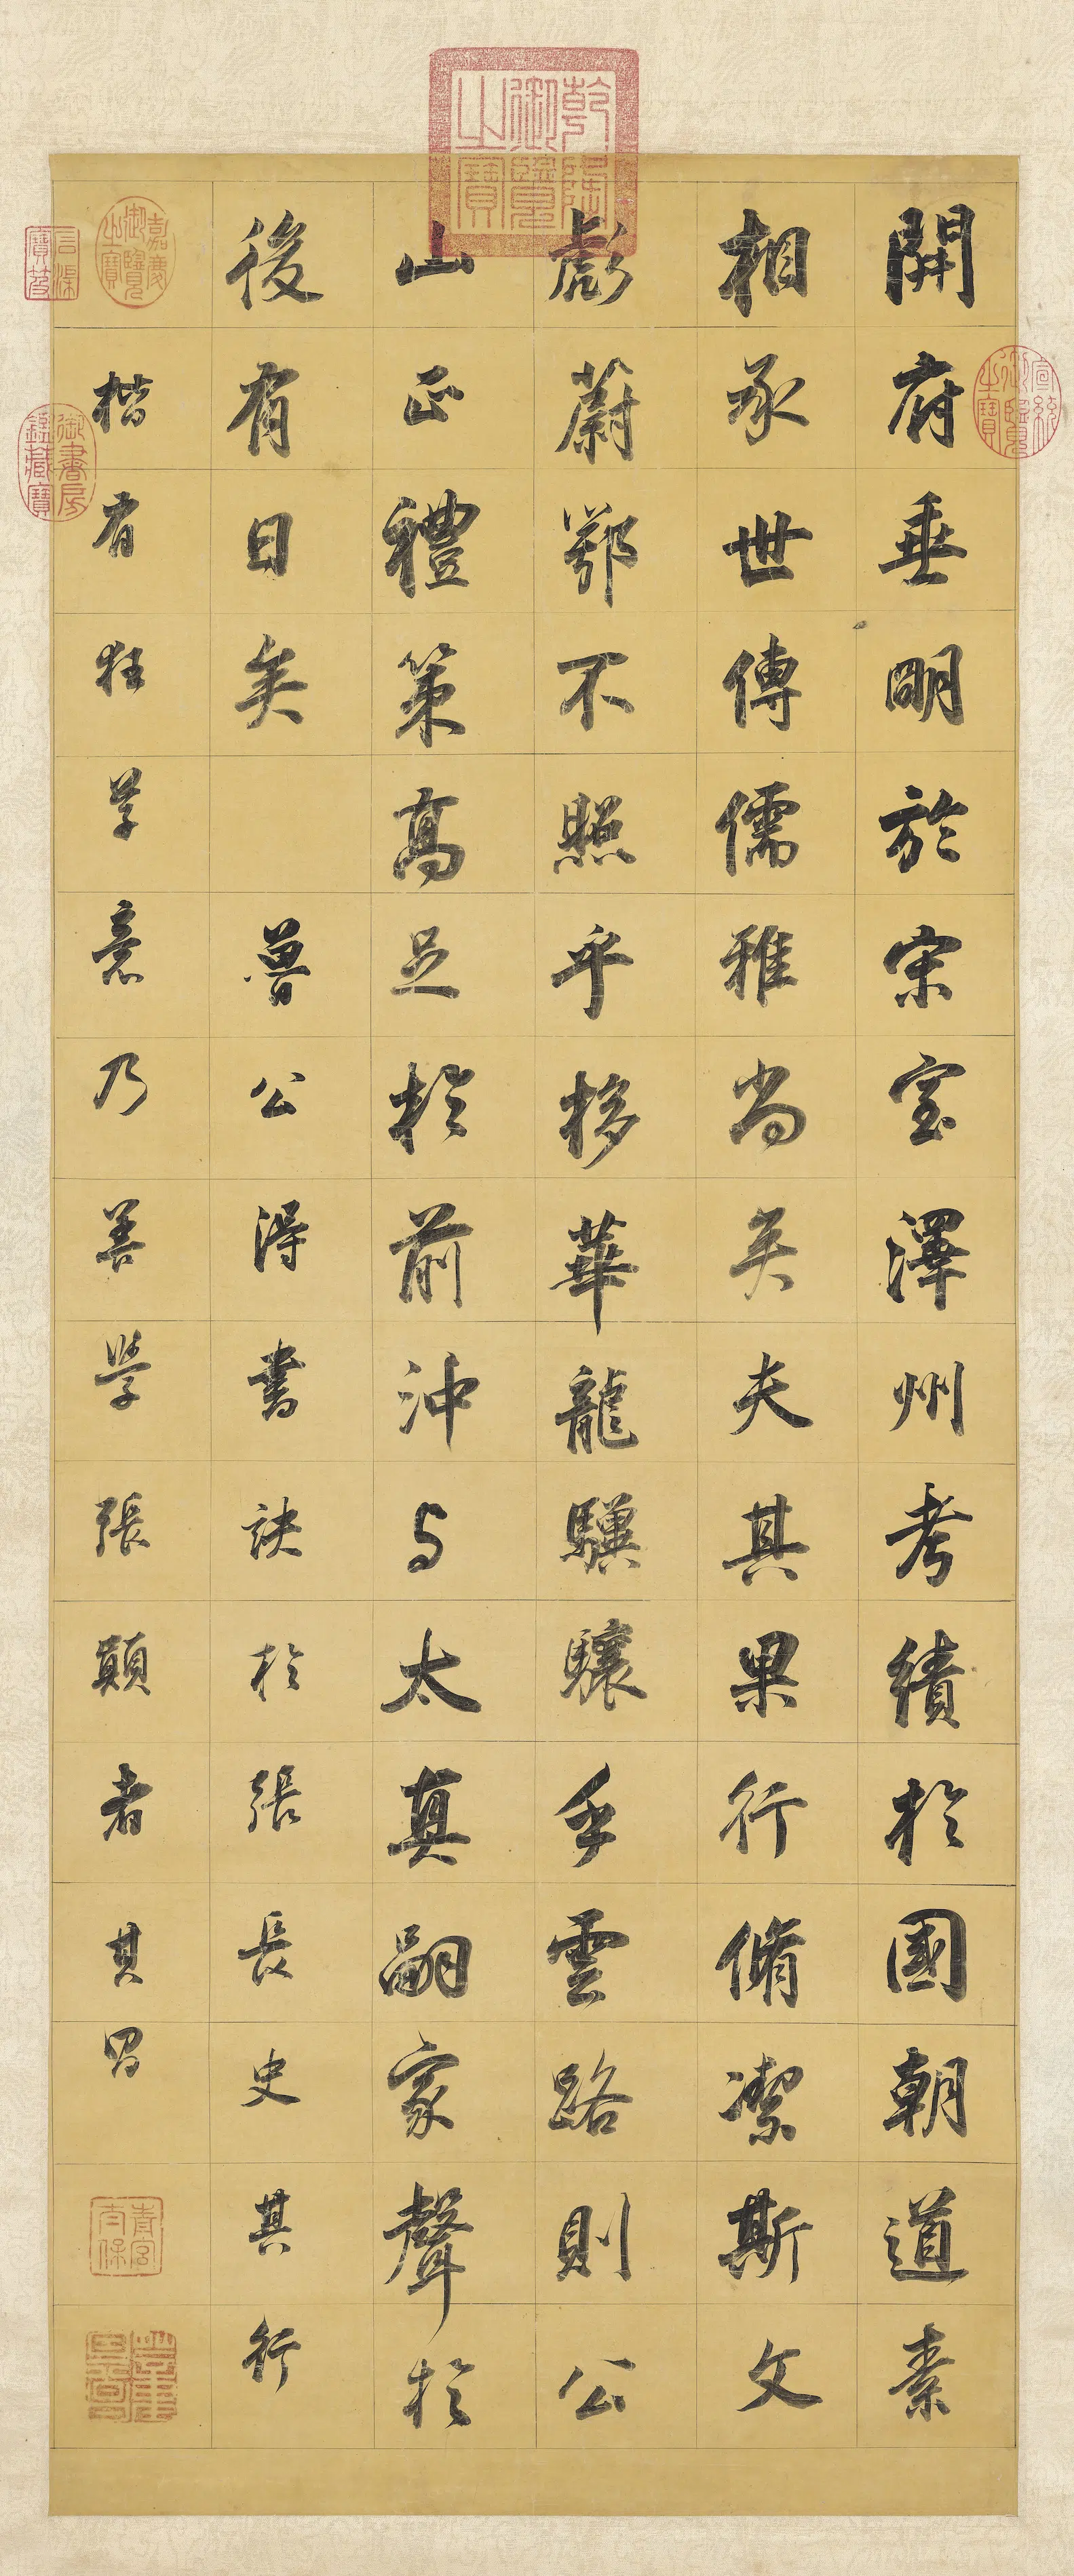 乾隆御覽之寶
宣統御覽之寶
開府垂明於宋室澤州考績於國朝道素
相承世傳儒雅尚矣夫其果行脩潔斯文
彪蔚鄂不照乎栘華龍驥驤乎雲路則公
山正禮策高足於前沖与太真嗣家聲於
後有日矣 魯公得書訣於張長史其行
楷有狂草意乃善學張顛者其昌
嘉慶御覽之寶
石渠寶笈
御書房鑑藏寶
青宮太保